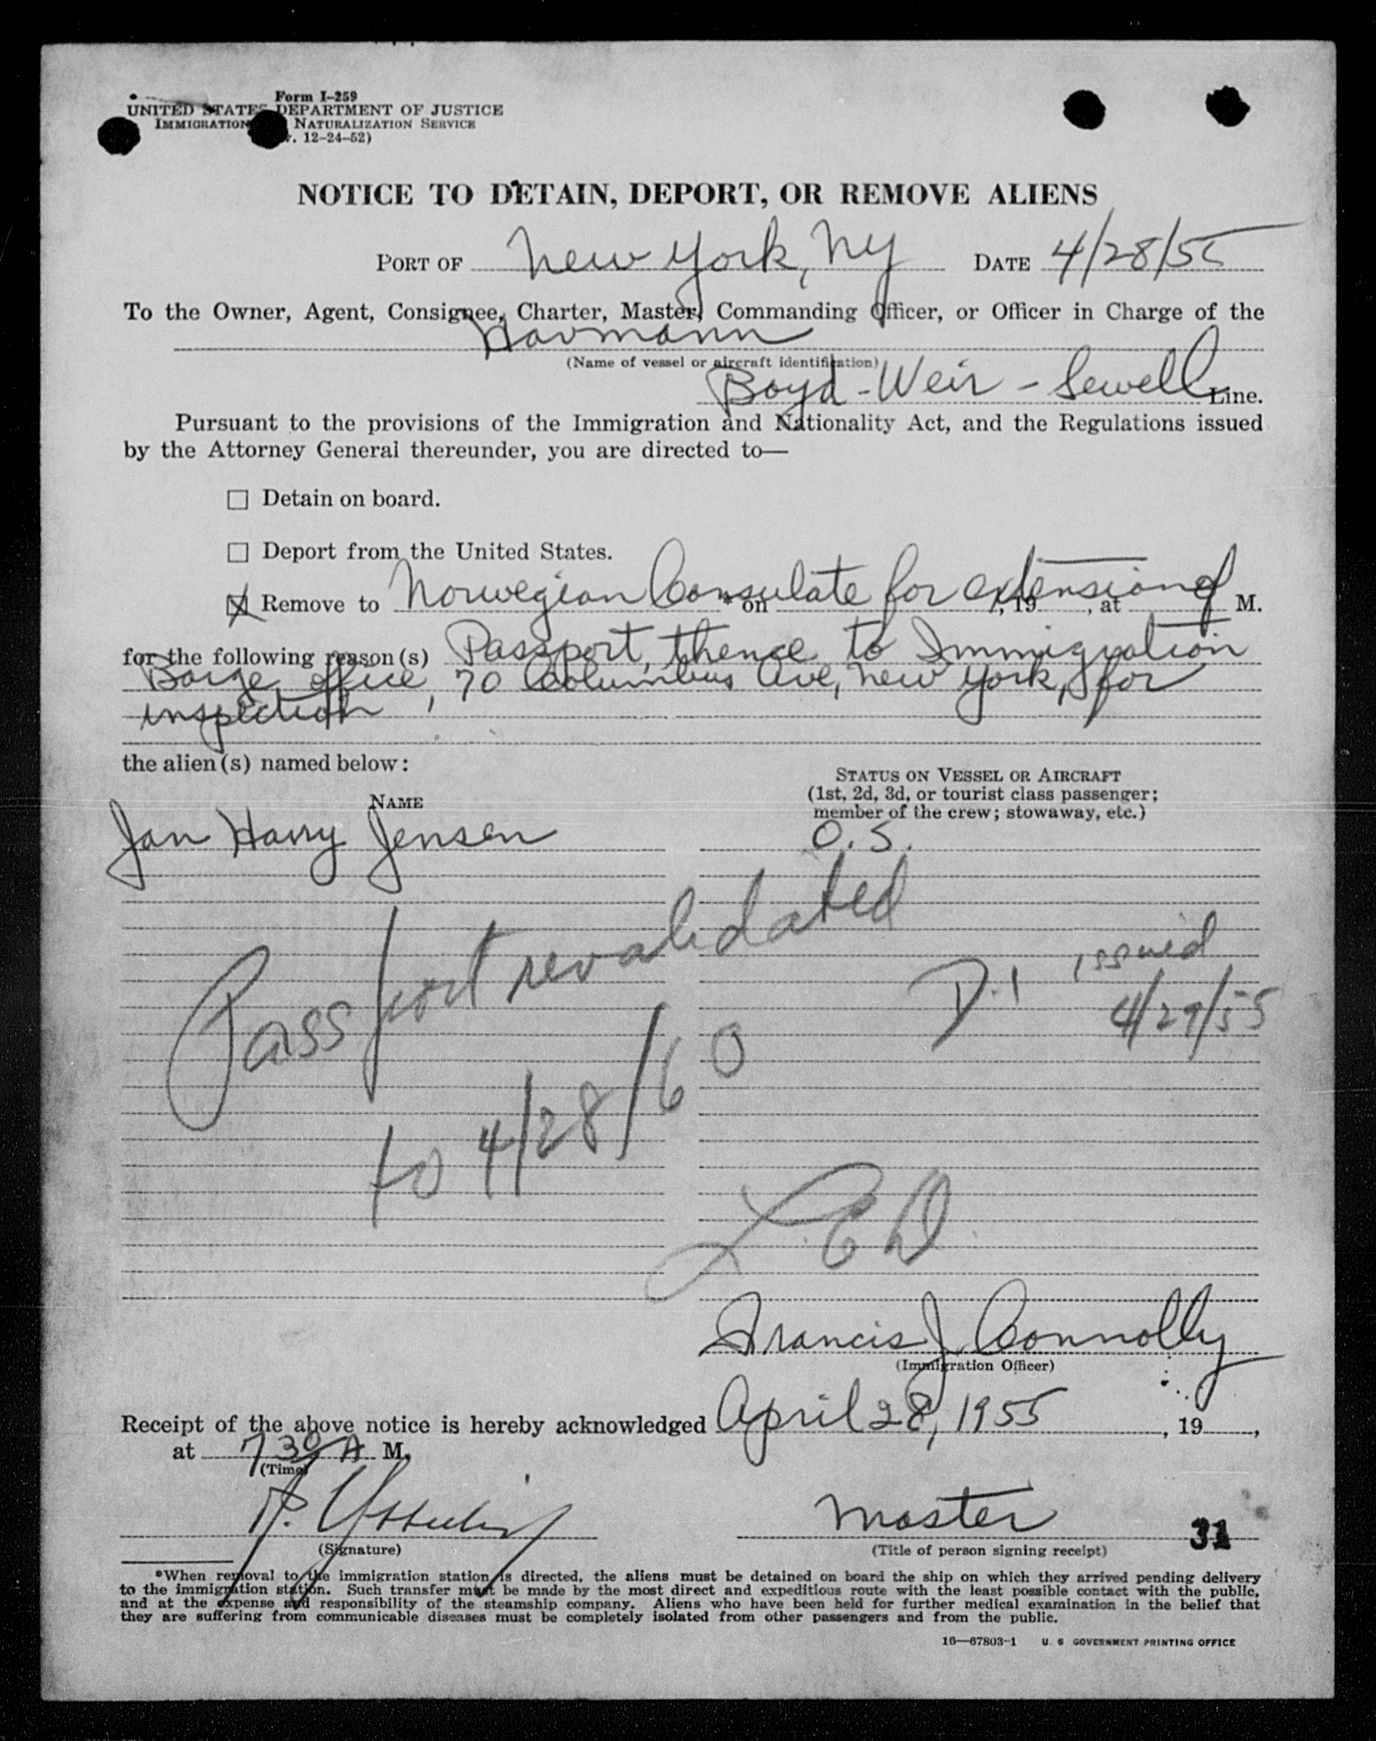 Form I-259
UNITED STATES DEPARTMENT OF JUSTICE
IMMIGRATION NATURALIZATION SERVICE
12-24-52)
NOTICE TO DETAIN, DEPORT, OR REMOVE ALIENS
PORT OF New York, NY DATE 4/28/55
To the Owner, Agent, Consignee, Charter, Master, Commanding Officer, or Officer in Charge of the
Havmann
(Name of vessel or aircraft identification)
Boyd-Weir-Sewell Line.
Pursuant to the provisions of the Immigration and Nationality Act, and the Regulations issued
by the Attorney General thereunder, you are directed to—
☐ Detain on board.
☐ Deport from the United States.
☒ Remove to Norwegian Consulate for extension of * on , 19 , at M.
for the following reason(s) Passport, thence to Immigration
Barge office, 70 Columbus Ave, New York, for
inspection
the alien(s) named below:
STATUS ON VESSEL OR AIRCRAFT
(1st, 2d, 3d, or tourist class passenger;
member of the crew; stowaway, etc.)
NAME
Jan Harry Jensen O.S.
Passport revalidated
to 4/28/60
D-1 issued
4/29/55
LED
Francis J Connolly
(Immigration Officer)
Receipt of the above notice is hereby acknowledged April 28, 1955, 19 ,
at 7 30 A M.
(Time)
Master
31
(Signature)
(Title of person signing receipt)
*When removal to the immigration station is directed, the aliens must be detained on board the ship on which they arrived pending delivery
to the immigration station. Such transfer must be made by the most direct and expeditious route with the least possible contact with the public,
and at the expense and responsibility of the steamship company. Aliens who have been held for further medical examination in the belief that
they are suffering from communicable diseases must be completely isolated from other passengers and from the public.
16—67803-1 U. S GOVERNMENT PRINTING OFFICE